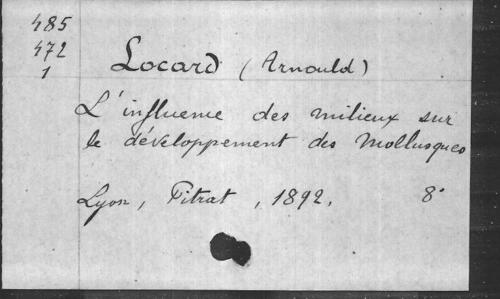 485
472
1
Locard (Arnould)
L'influence des milieux sur
le développement des Mollusques
Lyon, Pitrat, 1892. 8°